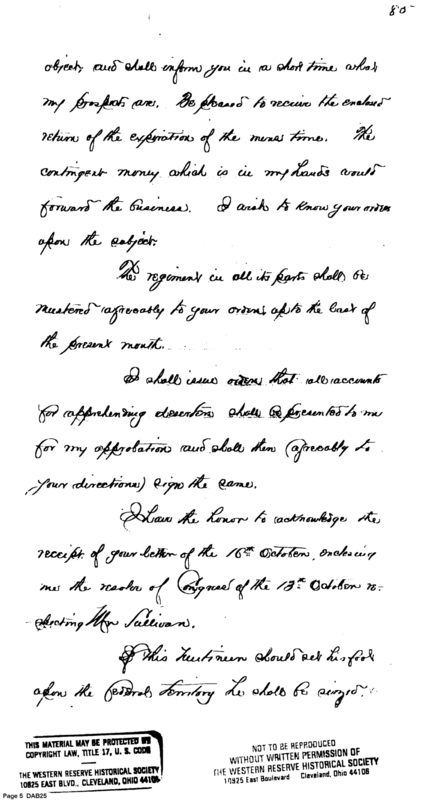 80
object, and shall inform you in a short time what
my prospects are. Be pleased to receive the enclosed
return of the expiration of the mens time. The
contingent money which is in my hands would
forward the business. I wish to know your orders
upon the subject.
The regiment in all its parts shall be
mustered agreeably to your orders up to the last of
the present month.
I shall issue orders that all accounts
for apprehending deserters shall be presented to me
for my approbation and shall then (agreeably to
your directions) sign the same.
I have the honor to acknowledge the
receipt of your letter of the 16th October, enclosing
me the resolve of Congress of the 13th October re-
specting Mr Sullivan.
If this Justinean should set his foot
upon the federal territory he shall be seized.
THIS MATERIAL MAY BE PROTECTED BY
COPYRIGHT LAW, TITLE 17, U. S. CODE
THE WESTERN RESERVE HISTORICAL SOCIETY
10825 EAST BLVD., CLEVELAND, OHIO 44106
NOT TO BE REPRODUCED
WITHOUT WRITTEN PERMISSION OF
THE WESTERN RESERVE HISTORICAL SOCIETY
10925 East Boulevard Cleveland, Ohio 44106
Page 5 DAB25